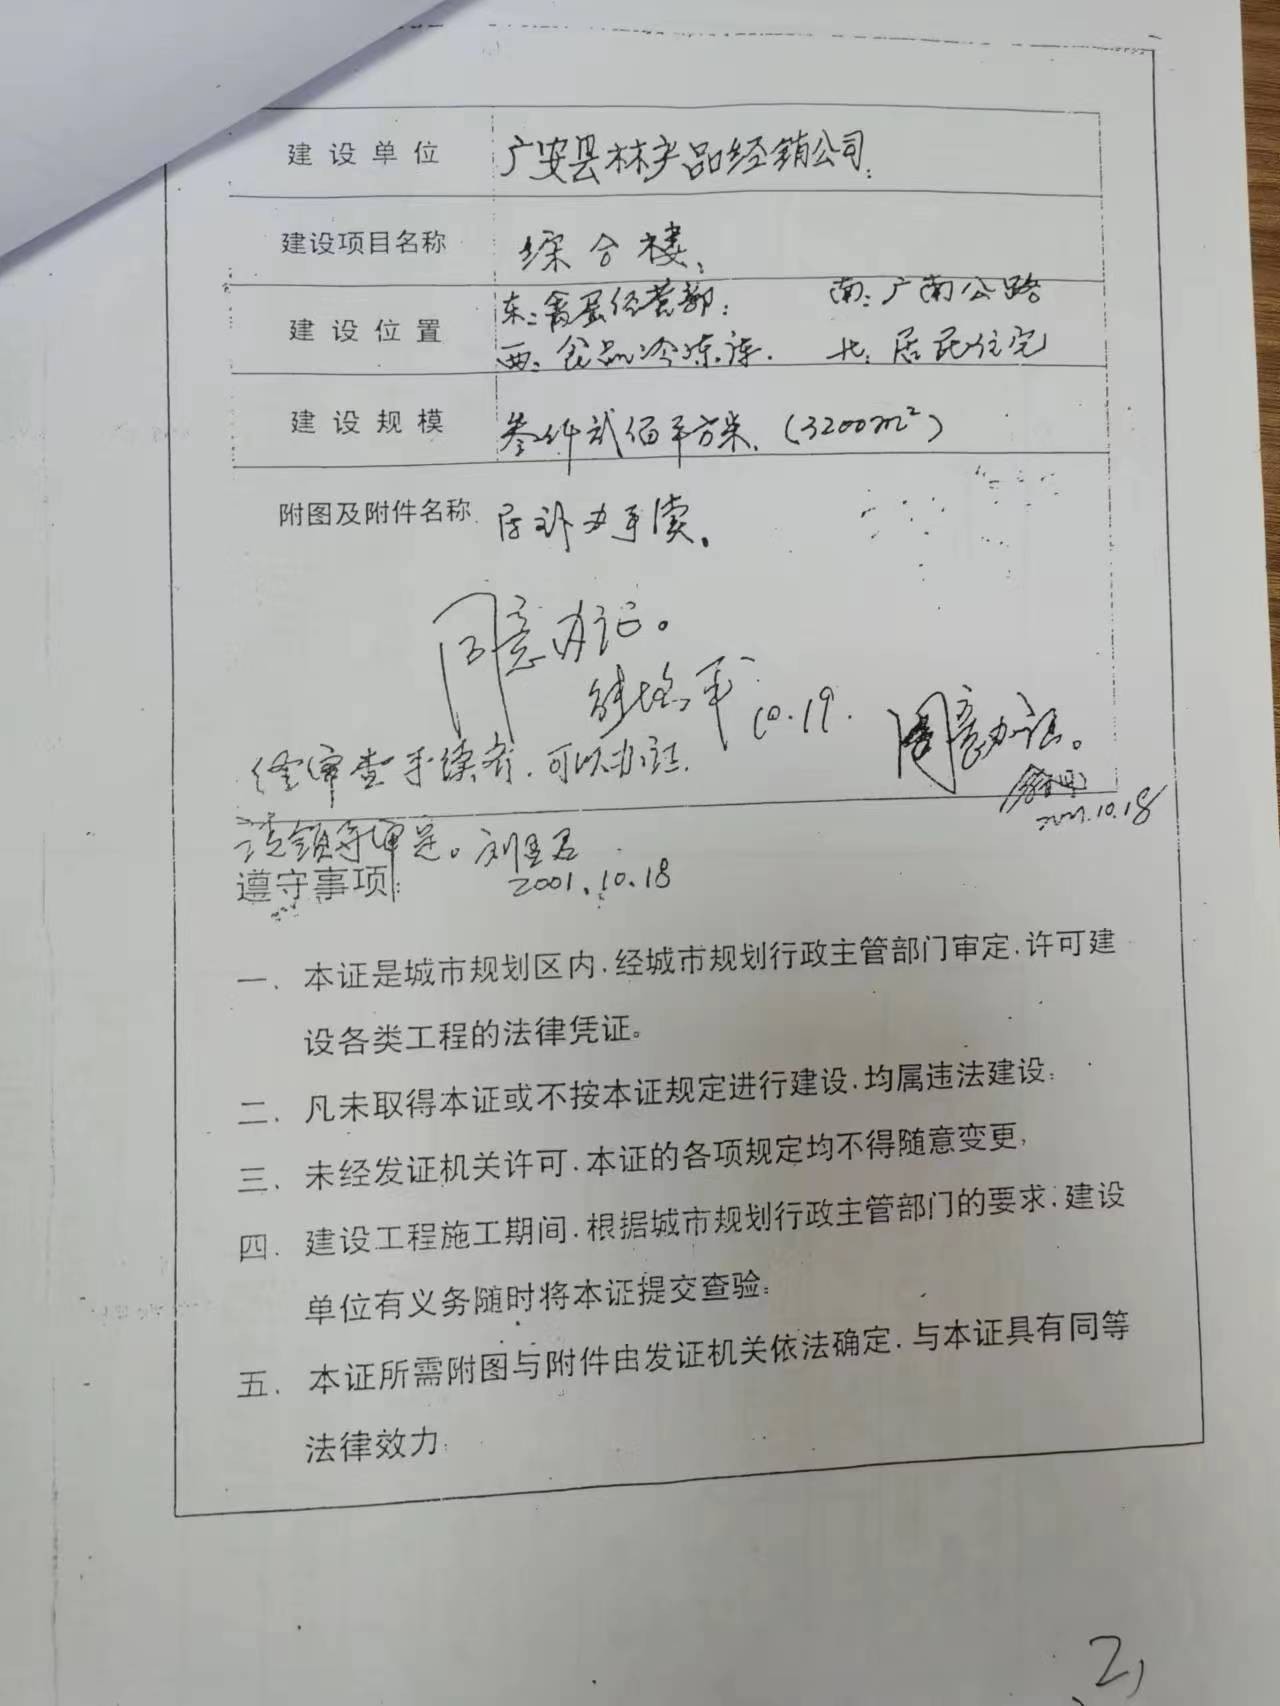 建设单位 广安县林产品经销公司.
建设项目名称 综合楼.
建设位置 东:禽蛋经营部: 南:广南公路
西:食品冷冻库. 北:居民住宅
建设规模 叁仟贰佰平方米. (3200m²)
附图及附件名称 后补办手续。
同意办证。
10.19.
经审查手续齐.可以办证.
同意办证。
请领导审定。刘
10.18
遵守事项:
2001.10.18
一. 本证是城市规划区内.经城市规划行政主管部门审定.许可建
设各类工程的法律凭证。
二. 凡未取得本证或不按本证规定进行建设.均属违法建设:
三. 未经发证机关许可.本证的各项规定均不得随意变更,
四. 建设工程施工期间.根据城市规划行政主管部门的要求.建设
单位有义务随时将本证提交查验:
五. 本证所需附图与附件由发证机关依法确定.与本证具有同等
法律效力.